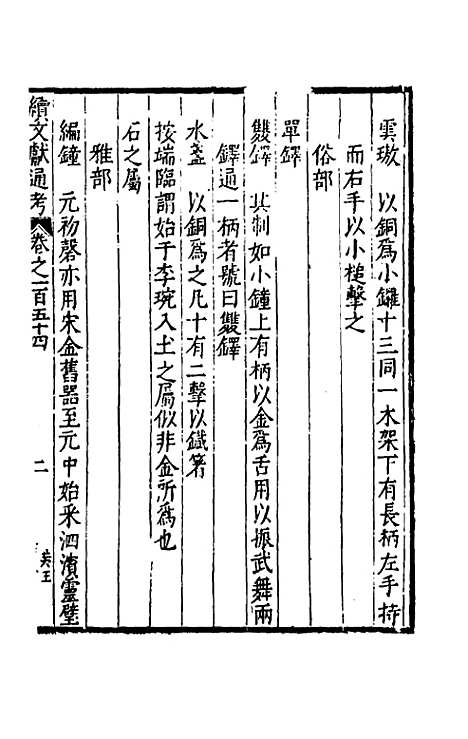 雲璈　以銅爲小鑼十三同一木架下有長柄左手持
而右手以小槌擊之
俗部
單鐸
雙鐸　其制如小鐘上有柄以金爲舌用以振武舞兩
鐸通一柄者號曰雙鐸
水盞　以銅爲之凡十有二擊以鐵箸
按端臨謂始于李琬入土之屬似非金所爲也
石之屬
雅部
編鐘　元初磬亦用宋金舊器至元中始釆泗濱靈璧
續文獻通考　卷之一百五十四　二